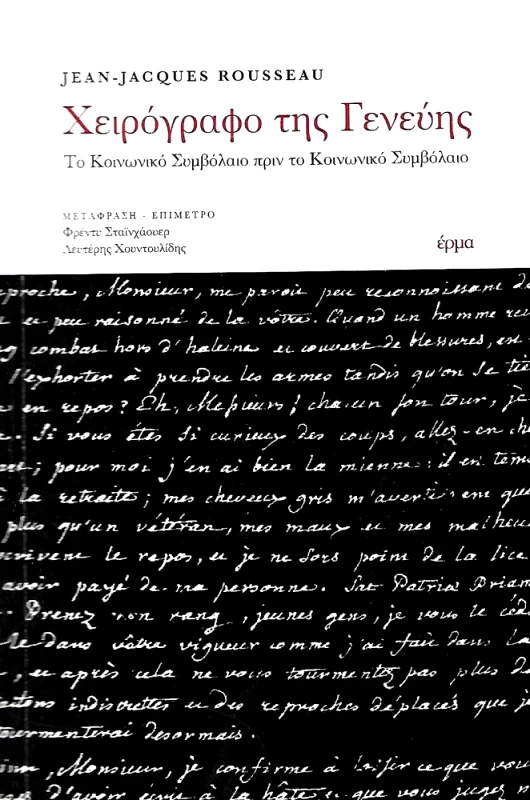 JEAN-JACQUES ROUSSEAU
Χειρόγραφο της Γενεύης
Το Κοινωνικό Συμβόλαιο πριν το Κοινωνικό Συμβόλαιο
ΜΕΤΑΦΡΑΣΗ - ΕΠΙΜΕΤΡΟ
Φρέντυ Σταϊνχάουερ
Λευτέρης Χουντουλίδης
έρμα
eproche, Monsieur, me paroit peu reconnoissant de
et peu raisonné de la vôtre. Quand un homme
combat hors d'haleine et couvert de blessures, est
l'exhorter à prendre les armes tandis qu'on se
en repos? Eh, Messieurs! chacun son tour, je
. Si vous êtes si curieux des coups, allez-en
; pour moi j'en ai bien la mienne: il en
à la retraite; mes cheveux gris m'avertissent que
plus qu'un vétéran, mes maux et mes
crivent le repos, et je ne sors point de la lice
avoir payé de ma personne. Sat Patriæ
. Prenez mon rang, jeunes gens, je vous le
le dans vôtre vigueur comme j'ai fait dans la
, et après cela ne vous tourmentez pas plus de
indiscrettes et des reproches déplacés que je
tourmenterai desormais.
, Monsieur, je confirme à ce que vous
d'avoir écrit à la hâte et que vous jugez